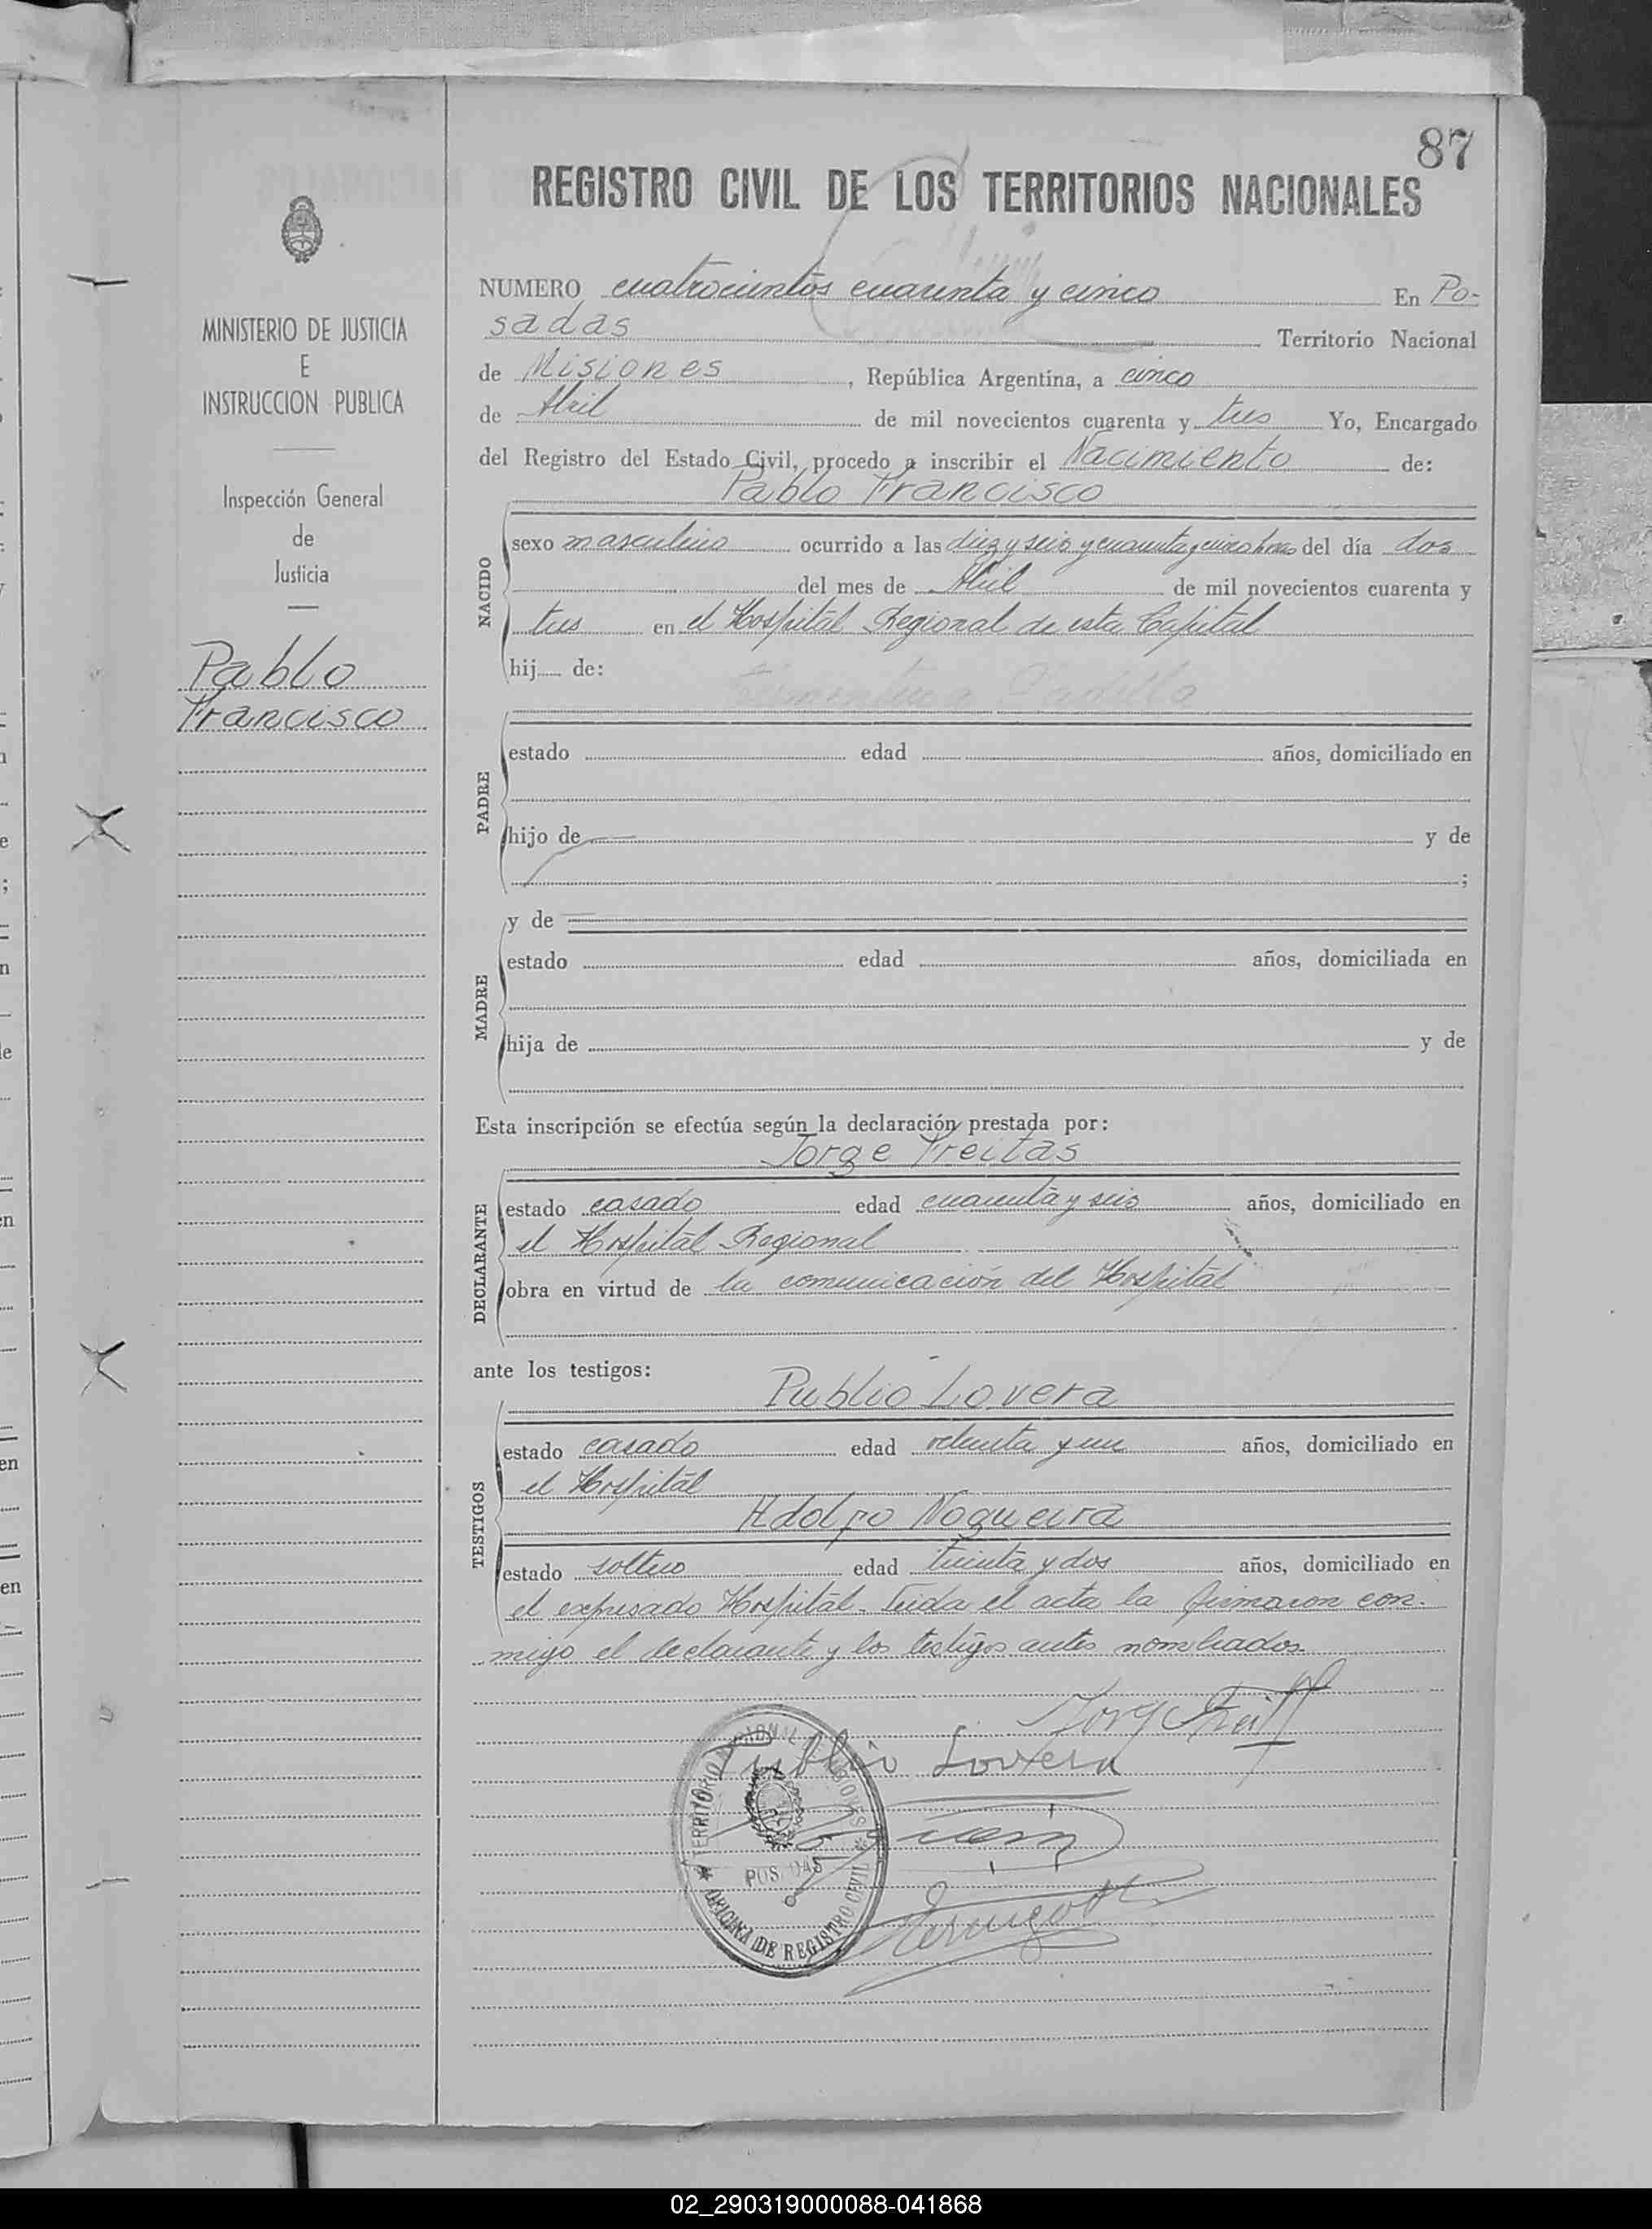 87
REGISTRO CIVIL DE LOS TERRITORIOS NACIONALES
MINISTERIO DE JUSTICIA
E
INSTRUCCION PUBLICA
Inspección General
de
Justicia
Pablo
Francisco
NUMERO cuatrocientos cuarenta y cinco En Po-
sadas Territorio Nacional
de Misiones, República Argentina, a cinco
de Abril de mil novecientos cuarenta y tres Yo, Encargado
del Registro del Estado Civil, procedo a inscribir el Nacimiento de:
Pablo Francisco
NACIDO
sexo masculino ocurrido a las diez y seis y cuarenta y cinco horas del día dos
del mes de Abril de mil novecientos cuarenta y
tres en el Hospital Regional de esta Capital
hij de:
PADRE
estado edad años, domiciliado en
hijo de y de
;
MADRE
y de
estado edad años, domiciliada en
hija de y de
Esta inscripción se efectúa según la declaración prestada por:
Jorge Freitas
DECLARANTE
estado casado edad cuarenta y seis años, domiciliado en
el Hospital Regional
obra en virtud de la comunicación del Hospital
ante los testigos:
Publio Lovera
TESTIGOS
estado casado edad y un años, domiciliado en
el Hospital
Adolfo Nogueira
estado soltero edad treinta y dos años, domiciliado en
el expresado Hospital. Leida el acta la firmaron con-
migo el declarante y los testigos antes nombrados.
Publio Lovera
TERRITORIO NACIONAL DE MISIONES
POSADAS
OFICINA DE REGISTRO CIVIL
02_290319000088-041868